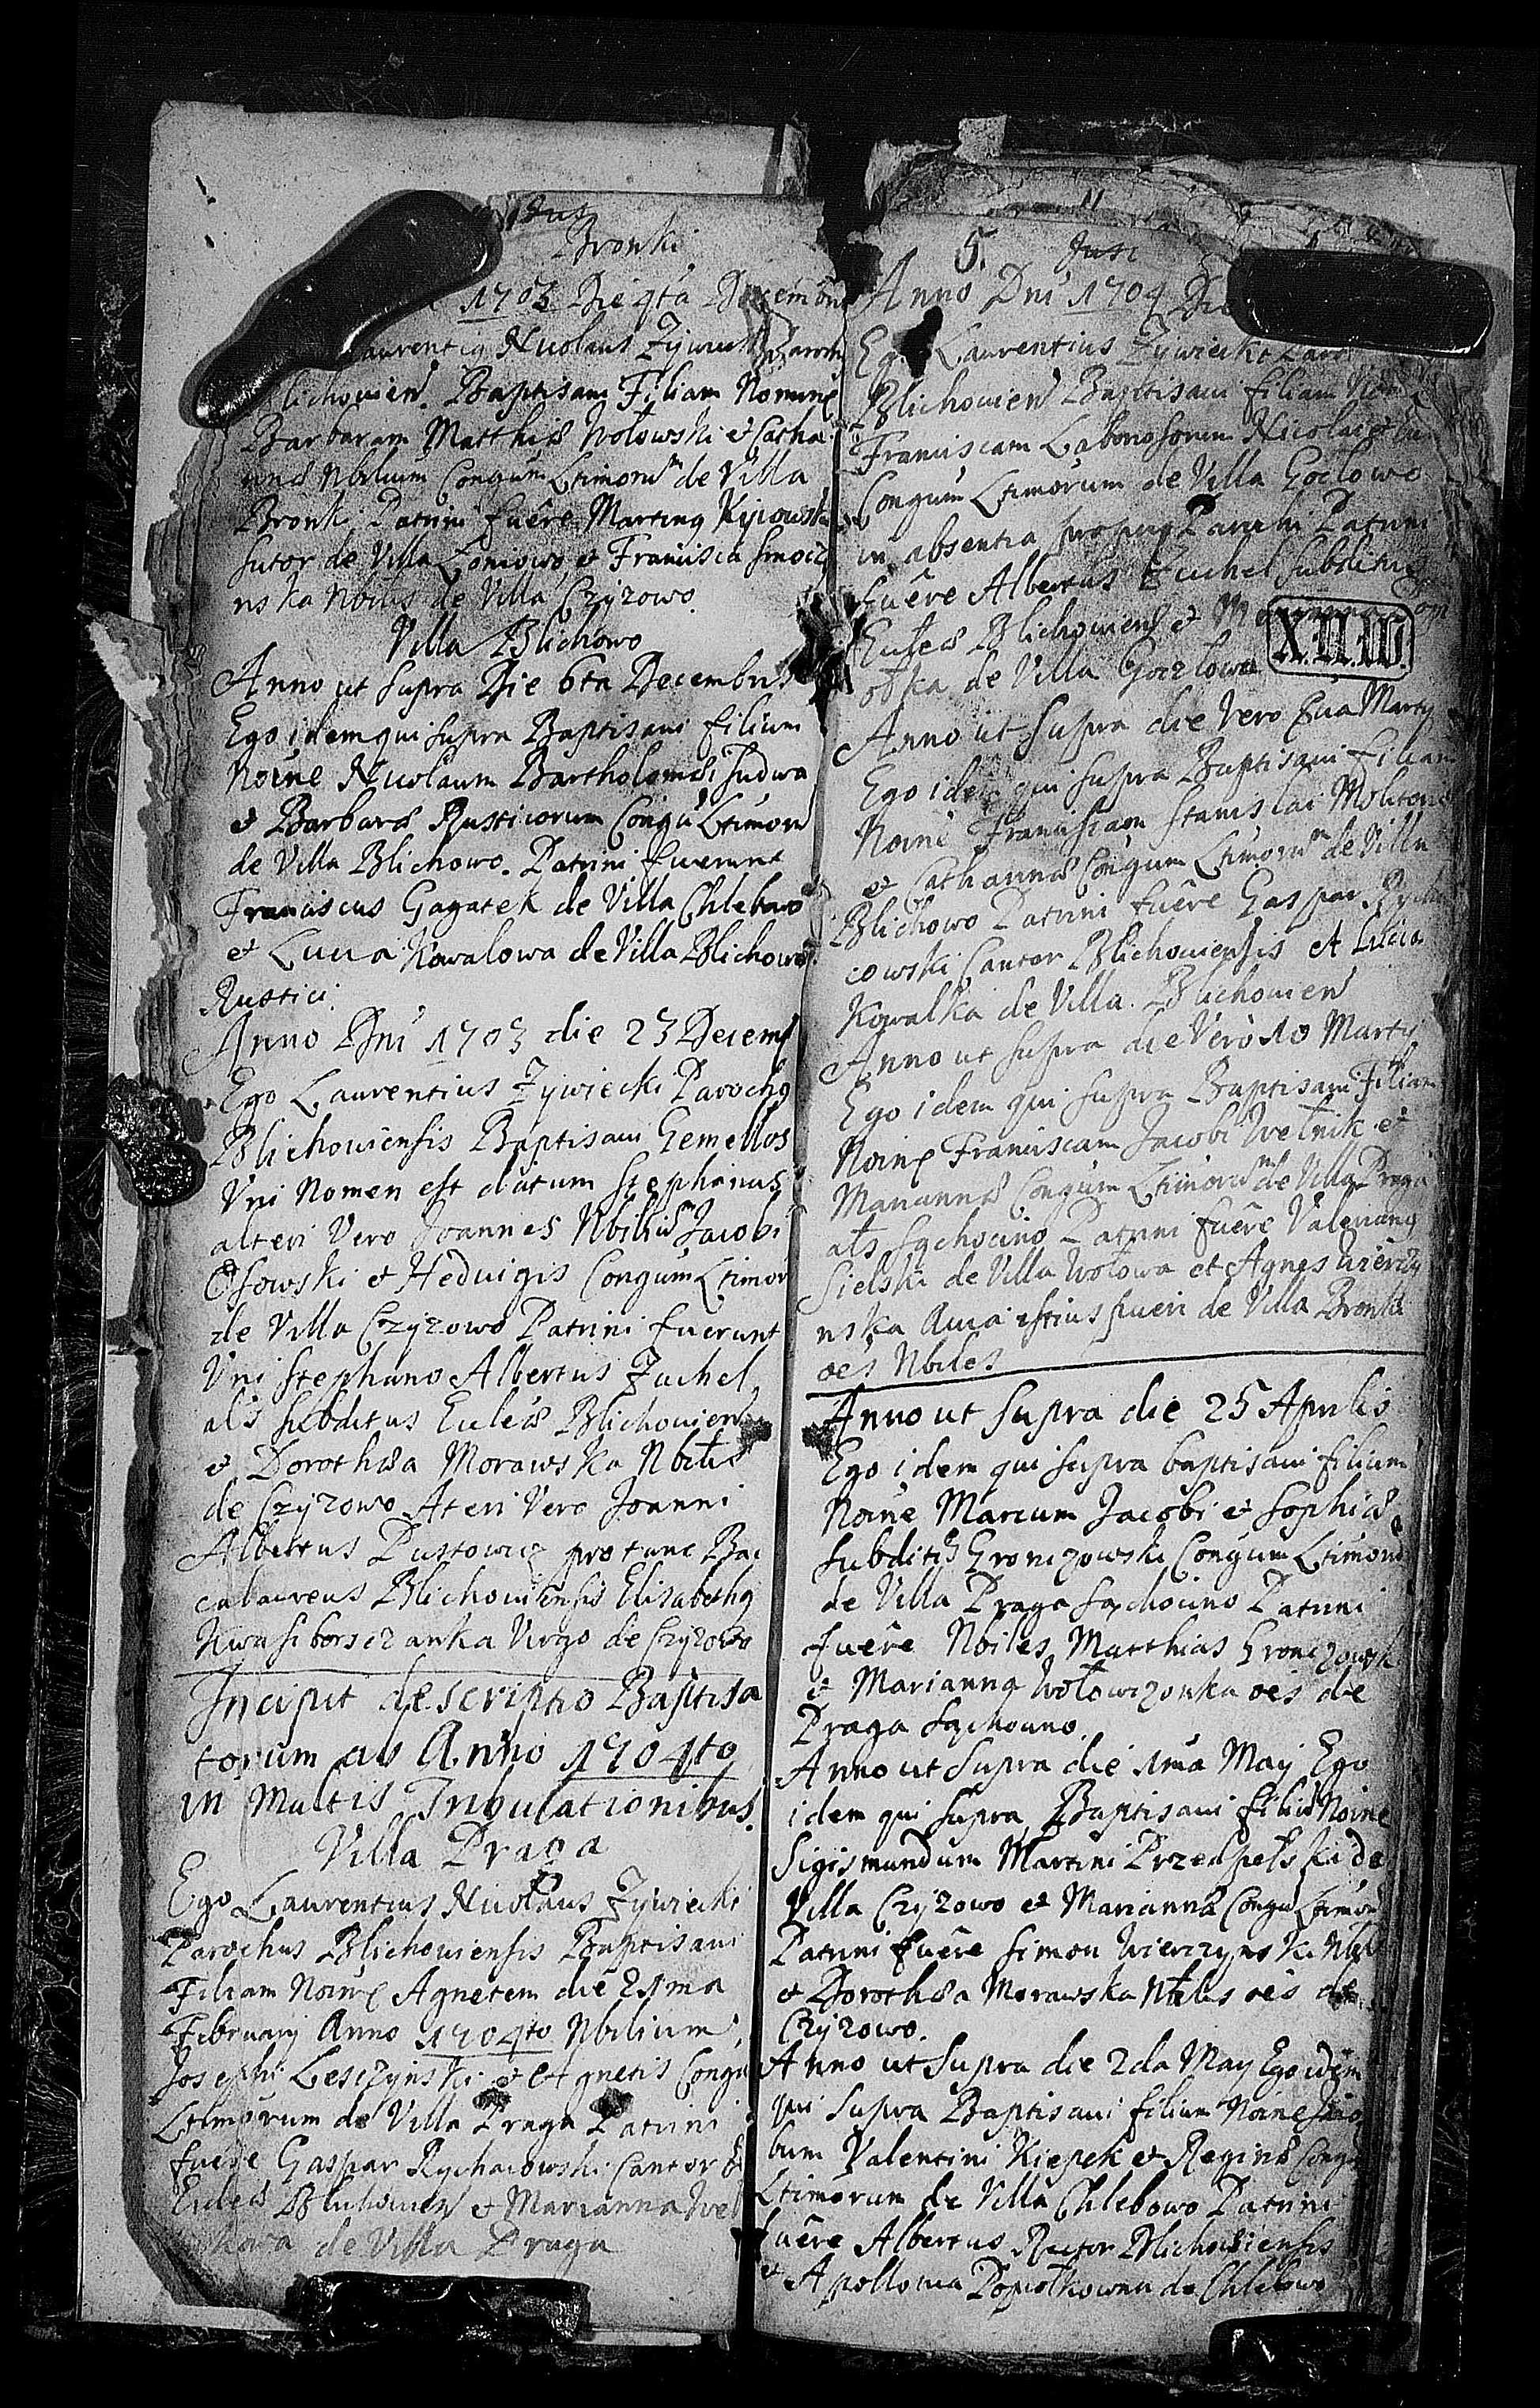 Bronki
1703 Die 4ta Decembr
Laurentiq Nicolaus Żywiecki Paroch
Blichovien. Baptisavi Filiam Nomine
Barbaram Matthiæ Wołowski et Catha
rinæ Nbilium Coñgum Ltimorum de Villa
Bronki Patrini fuêre Martinq Kijowski
sutor de Villa et Francisca
nska Nbilis de Villa Czyzowo
Villa Blichowo
Anno ut supra Die 6ta Decembris
Ego idem qui supra Baptisavi filium
Noine Nicolaum Bartholomæi Sudwa
et Barbaræ Rusticorum Congu Ltimoru
de Villa Blichowo. Patrini fuerunt
Franciscus Gagatek de Villa Chlebowo
et Lucia Kowalowa de Villa Blichowo
Rustici
Anno Dni 1703 die 23 Decemb
Ego Laurentius Żywiecki Parochq
Blichoviensis Baptisavi Gemellos
Uni Nomen est datum Stephanus
alteri Vero Joannes Nbiliũ Jacobi
Osowski et Hedvigis Congum Ltimor
de Villa Czyzowo Patrini fuerunt
Uni Stephano Albertus Zuchel
als subditus Eulæ Blichovien
et Dorothæa Morawska Nbilis
de Czyzowo Ateri Vero Joanni
Albertus Pustowicz pro tunc Bac
calaureus Blichoviensis Elisabethq
Kwasiborszczanka Virgo de Czyzowo
Incipit descriptio Baptisa
torum ab Anno 1704to
in Multis Tribulationibus.
Villa Praga
Ego Laurentius Nicolaus Żywiecki
Parochus Blichoviensis Baptisavi
Filiam Noine Agnetem die 21ma
February Anno 1704to Nbilium
Josephi Lesczynski et Agnetis Congu
Ltimorum de Villa Praga Patrini
fuêre Gaspar Rychcowski Cantor
Eulæ Blichovien et Marianna Wel
kowa de Villa Praga
5.
Anno Dni 1704 Die
Ego Laurentius Żywiecki Paro
Blichovien Baptisavi filiam Noi
Franciscam Laboriosorum Nicolai
Congum Ltimorum de Villa Goclowo
in absentia proprij Parochi Patrini
fuêre Albertus Zuchel subditus
Eulæ Blichovien et Marianna
de Villa Gorzlowo
X.II.III.
Anno ut supra die Vero Martij
Ego idem qui supra Baptisavi filiam
Noine Franciscam Stanislai Molitoris
et Catharinæ Congum Ltimorum de Villa
Blichowo Patrini fuêre Gaspar Rych
cowski Cantor Blichoviensis et Lucia
Kowalka de Villa Blichovien
Anno ut supra die Vero 10 Martij
Ego idem qui supra Baptisavi Filiam
Noine Franciscam Jacobi Wełnik et
Mariannæ Congum Ltimorum de Villa Praga
als Sachocino Patrini fuêre Valerianq
Sielski de Villa Wołowa et Agnes Wierczy
nska Avia istius pueri de Villa Bronki
oes Nbiles
Anno ut supra die 25 Aprilis
Ego idem qui supra baptisavi filium
Noine Marcum Jacobi et Sophiæ
subditq Gronczowski Congum Ltimoru
de Villa Praga Sachocino Patrini
fuêre Nbiles Matthias Gronczowsk
et Marianna Wołowczonka oes de
Praga Sachocino.
Anno ut supra die 1ma May Ego
idem qui supra Baptisavi filiũ Noine
Sigismundum Martini Przedpełski de
Villa Czyzowo et Marianna Congu Ltimoru
Patrini fuêre Simon Wierczynski Nbil
et Dorothæa Morawska Nbilis oes de
Czyzowo.
Anno ut supra die 2da May Ego idem
qui supra Baptisavi filium Noine Jaco
bum Valentini Kiepek et Reginæ Congu
Ltimorum de Villa Chlebowo Patrini
fuêre Albertus Rector Blichoviensis
et Apollonia Popiołkowna de Chlebowo